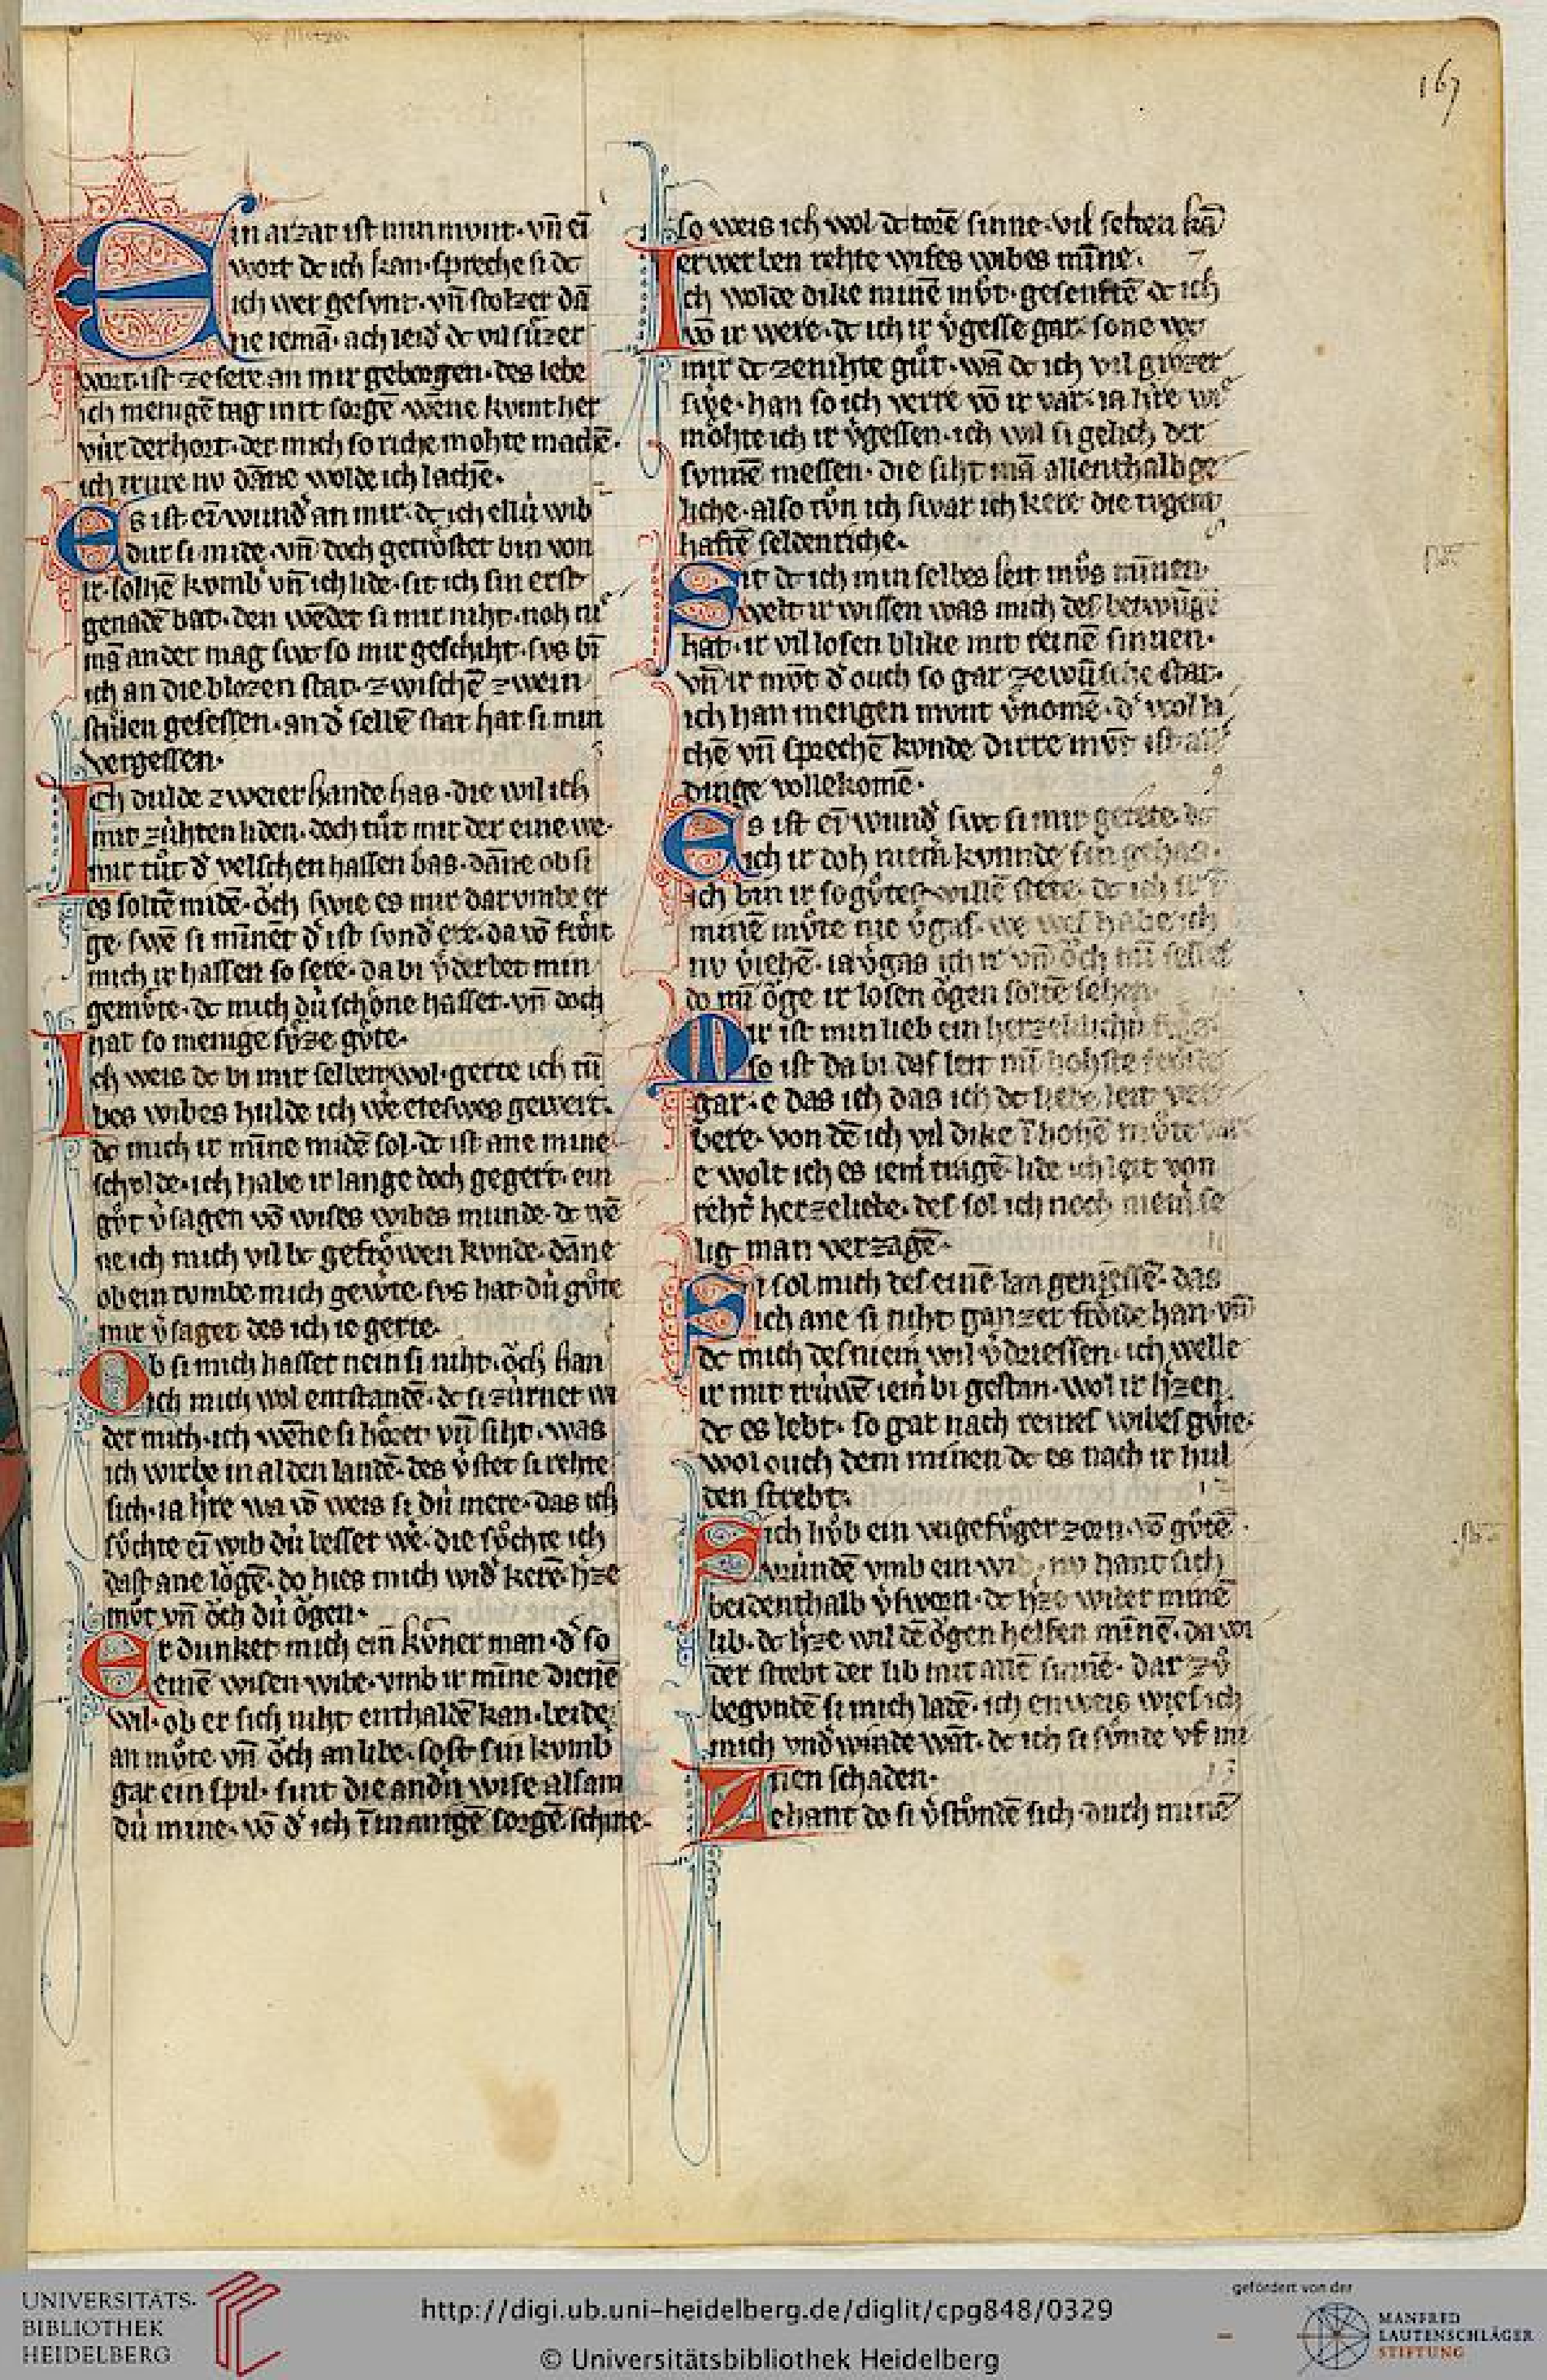 167
Ein arzat ist min munt. vn̄ ei
wort dc ich kan. spreche si dc
ich wer gesvnt. vn̄ stolzer dā
ne iemā. ach leid̕ dc vil sůzer
wort. ist ze sere an mir geborgen. des lebe
ich menigē tag mit sorgē. wēne kvmt her
vúr der hort. der mich so riche mohte machē.
ich trure nv dāne wolde ich lachē.
Es ist eī wund̕ an mir. dc ich ellú wib
dur si mide. vn̄ doch getrôstet bin von
ir. solhē kvmb̕ vn̄ ich lide. sit ich sin erst
genadē bat. den wēdet si mir niht. noh nie
mā ander mag swc so mir geschiht. svs bī
ich an die blozen stat. zwischē zwein
stůlen gesessen. an d̕ selbē stat hat si min
vergessen.
Ich dulde zweier hande has. die wil ich
mit zúhten liden. doch tůt mir der eine we.
mir tůt d̕ velschen hassen bas. dāne ob si
es soltē midē. ôch swie es mir dar vmbe er
ge. swē si minēt d̕ ist svnd̕ ere. da vō frôit
mich ir hassen so sere. da bi v̕derbet min
gemůte. dc mich dú schône hasset. vn̄ doch
hat so menige sůze gůte.
Ich weis dc bi mir selben wol. gerte ich tū
bes wibes hulde ich we eteswes gewert.
dc mich ir mīne midē sol. dc ist ane mine
schvlde. ich habe ir lange doch gegert. ein
gůt v̕sagen vō wises wibes munde. dc wē
ne ich mich vil bc gefrôwen kvnde. dāne
ob ein tvmbe mich gewte. svs hat dú gůte
mir v̕saget des ich ie gerte.
Ob si mich hasset nein si niht. ôch kan
ich mich wol entstandē. dc si zúrnet wi
der mich. ich wēne si hôret vn̄ siht. was
ich wirbe in al den landē. des v̕stet si rehte
sich. ia h̕re wa vō weis si dú mere. das ich
sůchte eī wib dú besser we. die sůchte ich
dast ane lôgē. do hies mich wid̕ kerē h̕ze
můt vn̄ ôch dú ôgen.
Er dunket mich ein kůner man. d̕ so
einē wisen wibe. vmb ir mīne dienē
wil. ob er sich niht enthaldē kan. beide
an můte vn̄ ôch an libe. sost sin kvmb̕
gar ein spil. sint die andn̕ wise alsam
dú mine. vō d̕ ich in manigē sorgē schine.
so weis ich wol dc torē sinne. vil selten kā
erwerben rehte wises wibes mīne.
Ich wolde dike minē můt. gesenftē dc ich
vō ir were. dc ich ir v̕gesse gar. sone wc
mir dc ze nihte gůt. wā dc ich vil grôzer
swe. han so ich verre vō ir var. ia h̕re wie
môhte ich ir v̕gessen. ich wil si gelich der
svnnē messen. die siht mā allenthalb ge
liche. also tůn ich swar ich kere die tugent
haftē seldenriche.
Sit dc ich min selbes leit můs mīnen.
welt ir wissen was mich des betwūge
hat. ir vil losen blike mit reinē sinnen.
vn̄ ir mvt d̕ ouch so gar ze wūsche stat.
ich han mengen mvnt v̕nomē. d̕ wol la
chē vn̄ sprechē kvnde. dirre mvt ist alle
dinge vollekomē.
Es ist eī wund̕ swc si mir getete. dc
ich ir doh niem̕ kvnnde sin gehas.
ich bin ir so gůtes willē stete. dc ich ir ī
minē můte nie v̕gas. we wes habe ich
nv v̕iehē. ia v̕gas ich ir vn̄ ôch mī selbes
do mī ôge ir losen ôgen soltē sehen.
Mir ist min lieb ein herzeklichú
so ist da bi das leit mī hohste frôide
gar. e das ich das ich dc liebe leit ver
bere. von dē ich vil dike ī hohē můte var
e wolt ich es iem̕ tragē. lide ich leit von
reht̕ herzeliebe. des sol ich noch niem̕ se
lig man verzagē.
Si sol mich des einē lan geniessē. das
ich ane si niht ganzer frôide han. vn̄
dc mich des niem̕ wil v̕driessen. ich welle
ir mit trúwē iem̕ bi gestan. wol ir h̕zen
dc es lebt. so gar nach reines wibes gůte.
wol ouch dem minen dc es nach ir hul
den strebt.
Sich hůb ein vngefůger zorn. vō gůtē
vrúndē vmb ein wib. nv hant sich
beidenthalb v̕sworn. dc h̕ze wider minē
lib. dc h̕ze wil dē ôgen helfen mīnē. da wi
der strebt der lib mit allē sinnē. dar zů
begvndē si mich ladē. ich enweis wies ich
mich vnd̕winde wāt. dc ich si sůnde vf mi
nen schaden.
Zehant do si v̕stůndē sich. durch minē
UNIVERSITÄTS-
BIBLIOTHEK
HEIDELBERG
http://digi.ub.uni-heidelberg.de/diglit/cpg848/0329
© Universitätsbibliothek Heidelberg
gefördert von der
MANFRED
LAUTENSCHLÄGER
STIFTUNG